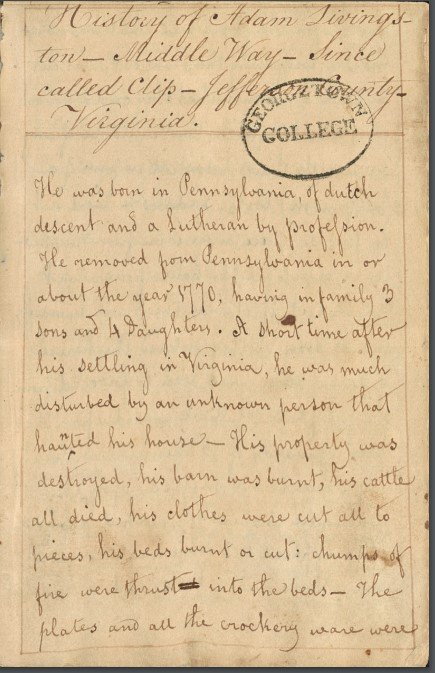 History of Adam Livings-
ton — Middle Way — Since
called Clip — Jefferson County —
Virginia.
GEORGETOWN
COLLEGE
He was born in Pennsylvania, of dutch
descent and a Lutheran by profession.
He removed from Pennsylvania in or
about the year 1770, having in family 3
sons and 4 daughters. A short time after
his settling in Virginia, he was much
disturbed by an unknown person that
haunted his house — His property was
destroyed, his barn was burnt, his cattle
all died, his clothes were cut all to
pieces, his beds burnt or cut: chumps of
fire were thrust into the beds — The
plates and all the crockery ware were